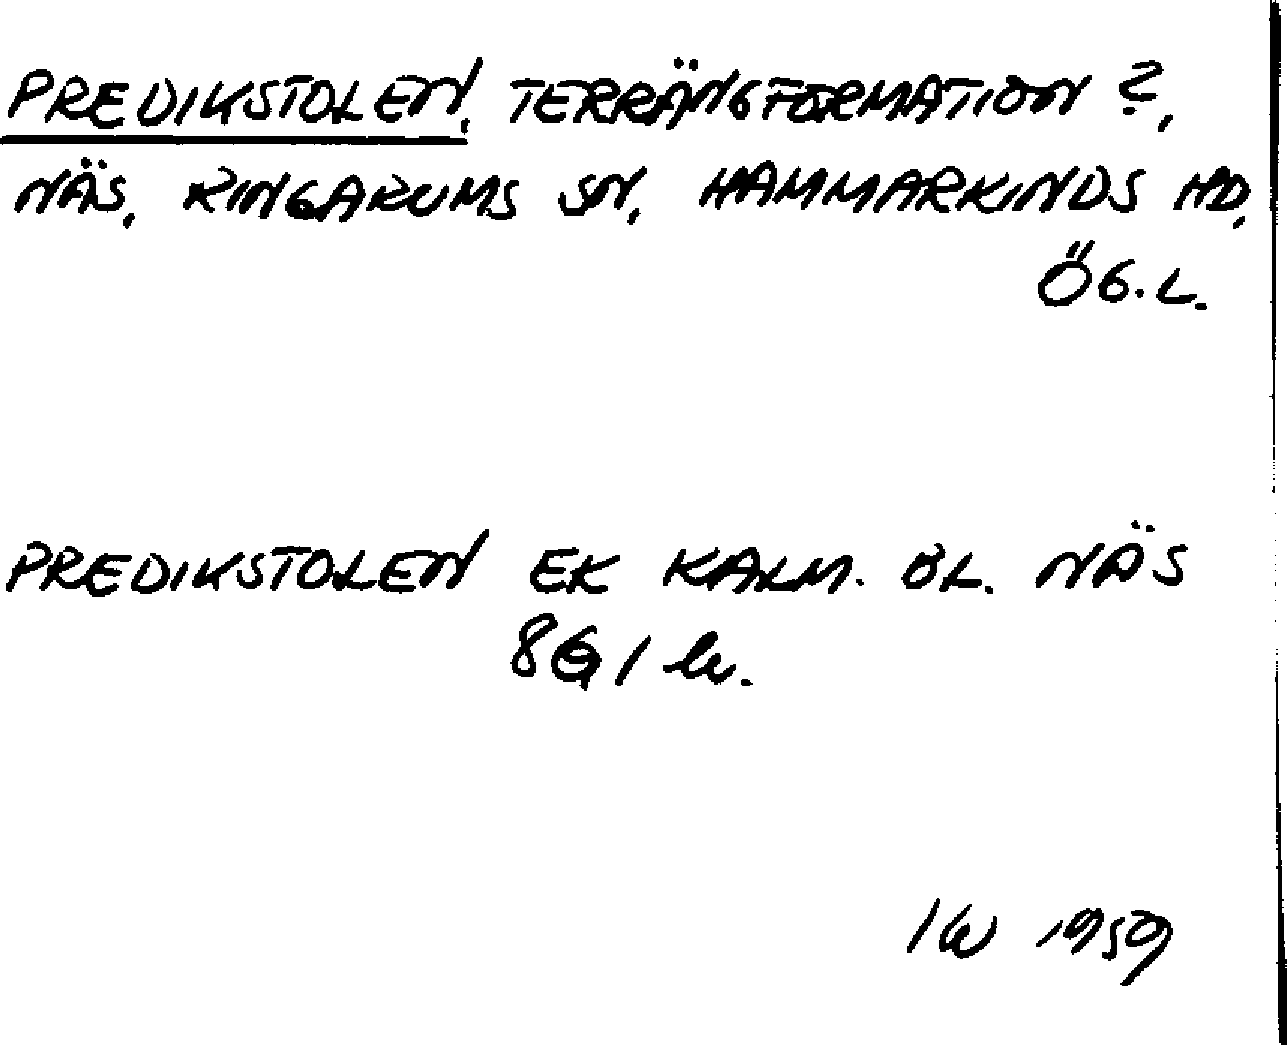 PREDIKSTOLEN, TERRÄNGFORMATION ?,
NÄS, RINGARUMS SN, HAMMARKINDS HD,
ÖG.L.
PREDIKSTOLEN EK KALM. BL. NÄS
8G1
IW 1959